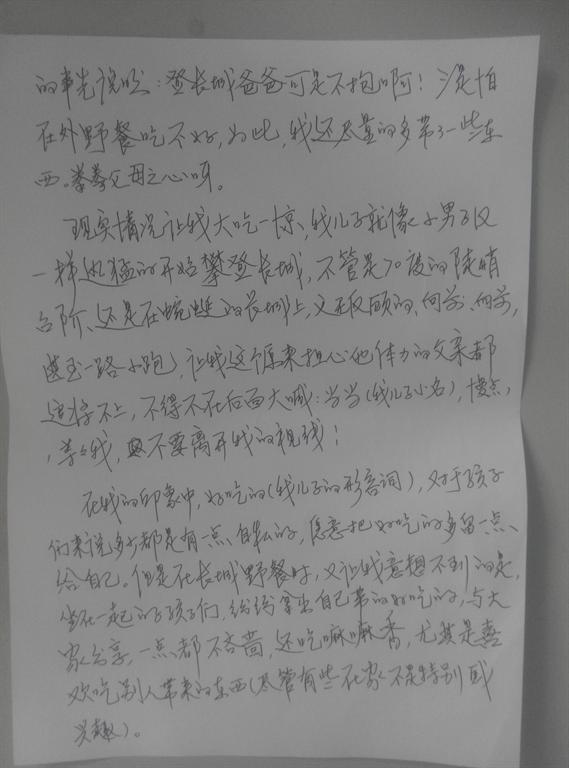 的事先说明：登长城爸爸可是不抱啊！ 还是怕
在外野餐吃不好，为此，我还尽量的多带了一些东
西。拳拳父母之心呀。
现实情况让我大吃一惊，我儿子就像小男子汉
一样迅猛的开始攀登长城，不管是70度的陡峭
台阶、还是在蜿蜒的长城上，义无反顾的、向前、向前，
甚至一路小跑，让我这个原来担心他体力的父亲都
追撵不上，不得不在后面大喊：当当(我儿子小名)，慢点，
，等等我，不要离开我的视线！
在我的印象中，好吃的(我儿子的形容词)，对于孩子
们来说多少都是有一点、自私的，愿意把好吃的多留一点、
给自己。但是在长城野餐时，又让我意想不到的是，
坐在一起的孩子们，纷纷拿出自己带的好吃的，与大
家分享，一点都不吝啬，还吃嘛嘛香，尤其是喜
欢吃别人带来的东西(尽管有些在家不是特别感
兴趣)。